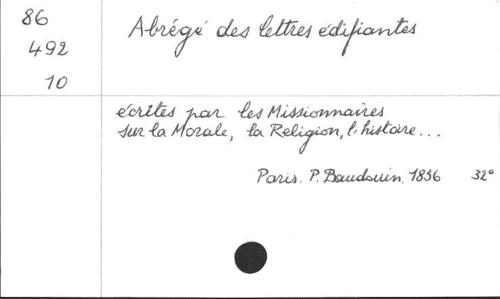 86
492
10
Abrégé des lettres édifiantes
écrites par les Missionnaires
sur la Morale, la Religion, l'histoire...
Paris. P. Baudouin, 1836 32°